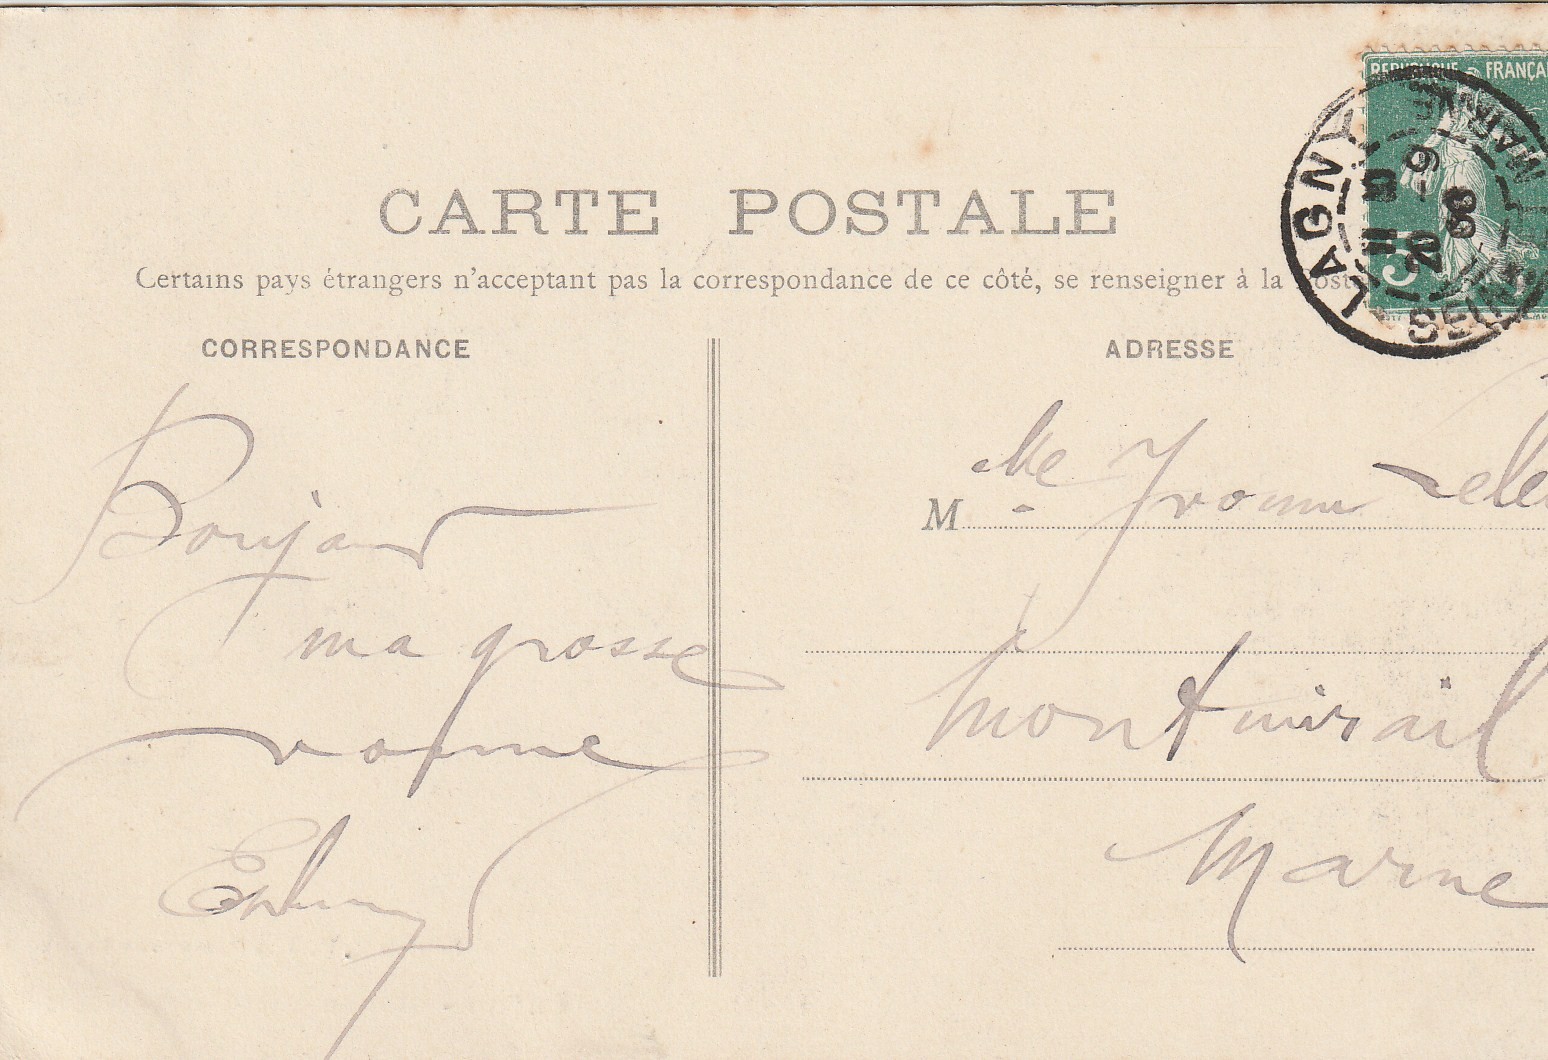 RÉPUBLIQUE FRANÇA
LAGNY
SEINE
MARNE
9
20
08
5
CARTE POSTALE
Certains pays étrangers n'acceptant pas la correspondance de ce côté, se renseigner à la Poste
CORRESPONDANCE
Bonjour
ma grosse
vonne
ADRESSE
M lle Yvonne
Montmirail
Marne